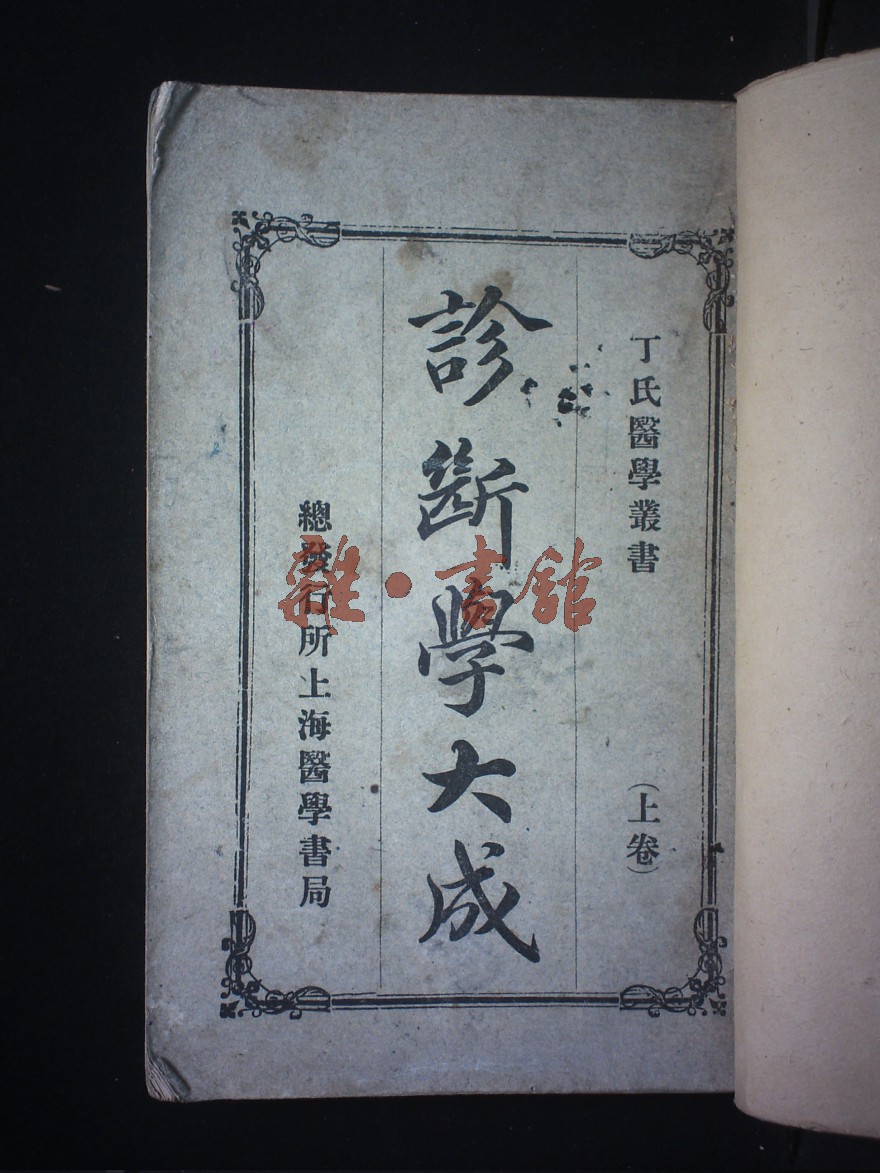 丁氏醫學叢書
（上卷）
診斷學大成
總發行所上海醫學書局
雜·書館